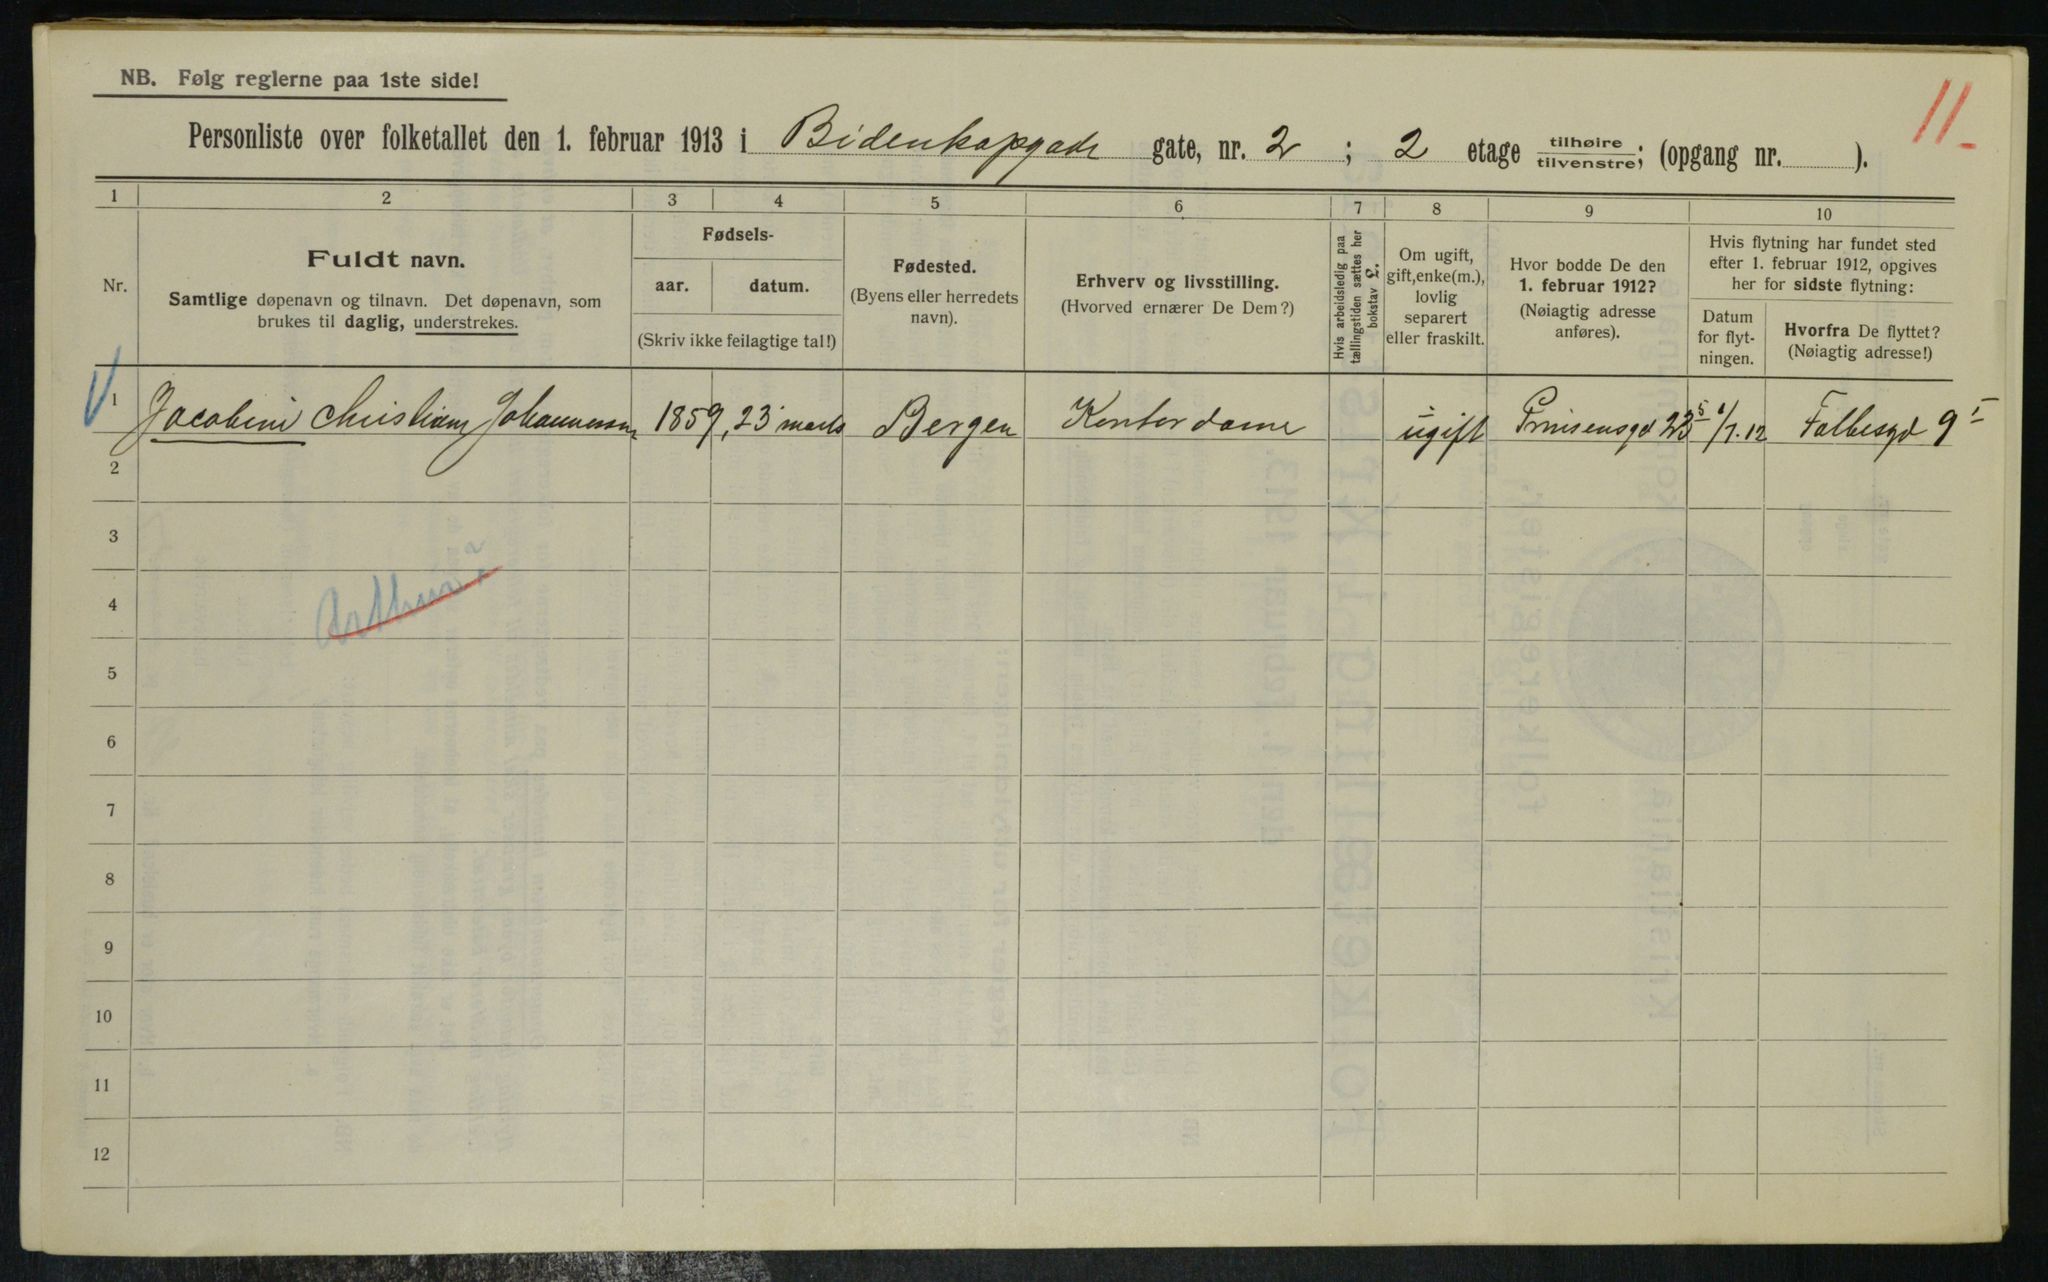 NB. Følg reglerne paa 1ste side!
11
Personliste over folketallet den 1. februar 1913 i Bidenkapgade gate, nr. 2 ; 2 etage tilhøire tilvenstre; (opgang nr. ).
1 2 3 4 5 6 7 8 9 10
Nr.
Fuldt navn.
Samtlige døpenavn og tilnavn. Det døpenavn, som
brukes til daglig, understrekes.
Fødsels-
aar. datum.
(Skriv ikke feilagtige tal!)
Fødested.
(Byens eller herredets
navn).
Erhverv og livsstilling.
(Hvorved ernærer De Dem?)
Hvis arbeidsledig paa
tællingstiden sættes her
bokstav L.
Om ugift,
gift, enke(m.),
lovlig
separert
eller fraskilt.
Hvor bodde De den
1. februar 1912?
(Nøiagtig adresse
anføres).
Hvis flytning har fundet sted
efter 1. februar 1912, opgives
her for sidste flytning:
Datum
for flyt-
ningen.
Hvorfra De flyttet?
(Nøiagtig adresse!)
1 Jacobine Christiane Johannessen 1859, 23 marts Bergen Kontordame ugift Prinsensgd 23 5 /7.12 Falbesgd 9 I
2
3
4
5
6
7
8
9
10
11
12